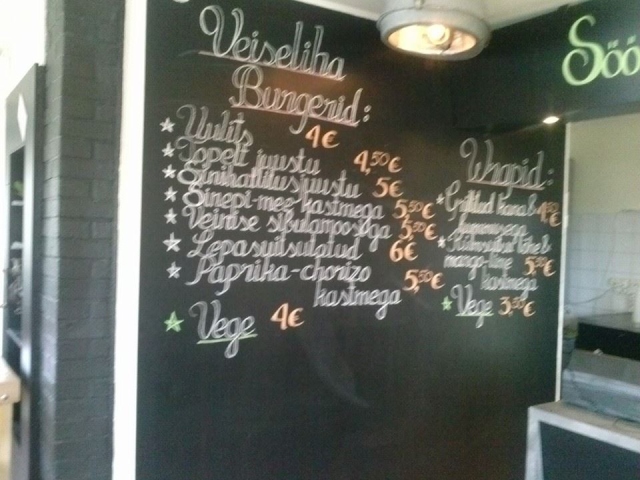 Veiseliha
Burgerid:
Uulits 4€
Topelt juustu 4,50€
Sinihallitusjuustu 5€
Sinepi-mee-kastmega 5,50€
Veinise sibulamoosiga 5,50€
Lepasuitsulatud 6€
Paprika-chorizo 5,50€
kastmega
Vege 4€
Wrapid:
Grillitud kana & 4,50€
hummusega
Külmsuitsu lõhe &
mango-laime 5,50€
kastmega
Vege 3,50€
Söö